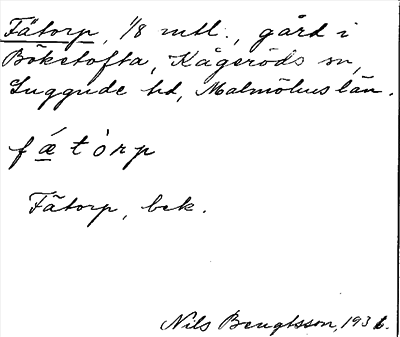 Fätorp, 1/8 mtl., gård i
Bökstofta, Kågeröds sn,
Luggude hd, Malmöhus län.
fǽtòrp
Fätorp, bek.
Nils Bengtsson, 193